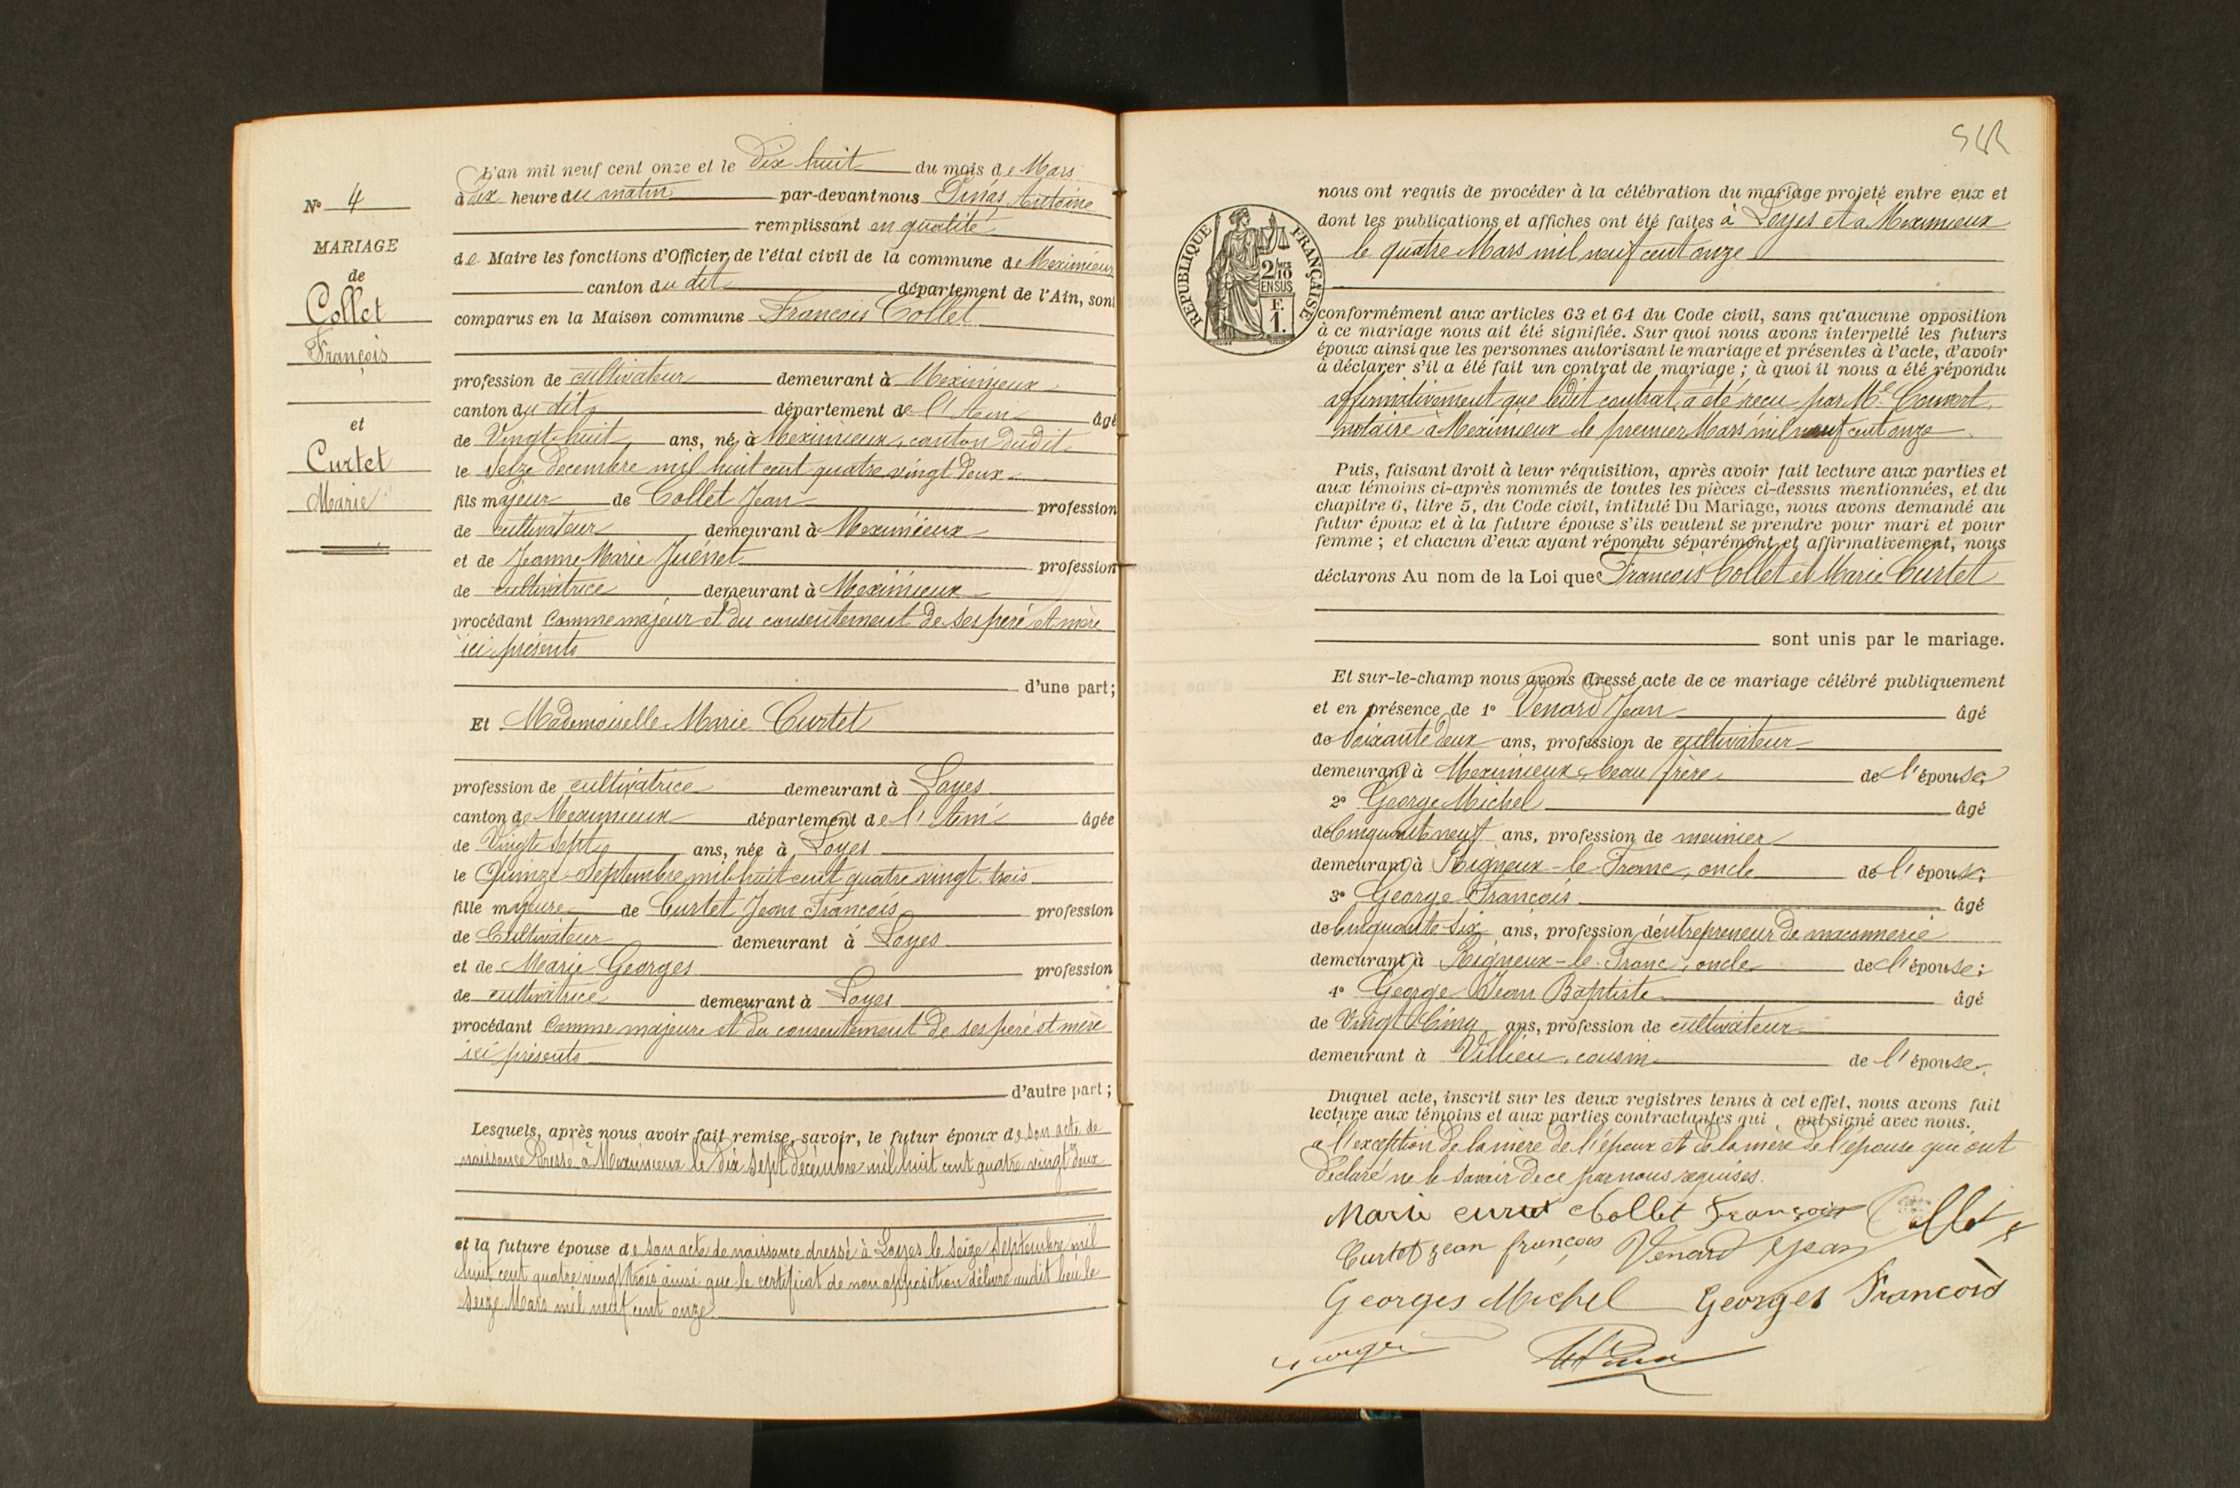 N° 4
MARIAGE
de
Collet
François
et
Curtet
Marie
L'an mil neuf cent onze et le dix huit du mois de Mars
à dix heure du matin par-devant nous Antoine
remplissant en qualité
de Maire les fonctions d'Officier de l'état civil de la commune de Meximieux
canton du dit département de l'Ain, sont
comparus en la Maison commune François Collet
profession de cultivateur demeurant à Meximieux
canton du dit département de l'Ain âgé
de Vingt huit ans, né à Meximieux, canton dudit
le seize décembre mil huit cent quatre vingt deux
fils majeur de Collet Jean profession
de cultivateur demeurant à Meximieux
et de Jeanne Marie Juénet profession
de cultivatrice demeurant à Meximieux
procédant comme majeur et du consentement de ses père et mère
ici présents
d'une part;
Et Mademoiselle Marie Curtet
profession de cultivatrice demeurant à Loyes
canton de Meximieux département de l'Ain âgée
de Vingt sept ans, née à Loyes
le Quinze Septembre mil huit cent quatre vingt trois
fille majeure de Curtet Jean François profession
de Cultivateur demeurant à Loyes
et de Marie Georges profession
de cultivatrice demeurant à Loyes
procédant comme majeure et du consentement de ses père et mère
ici présents
d'autre part;
Lesquels, après nous avoir fait remise, savoir, le futur époux de son acte de
naissance dressé à Meximieux le dix sept décembre mil huit cent quatre vingt deux
et la future épouse de son acte de naissance dressé à Loyes le seize Septembre mil
huit cent quatre vingt trois ainsi que le certificat de non opposition délivré audit lieu le
seize Mars mil neuf cent onze.
RÉPUBLIQUE FRANÇAISE
2/10
EN SUS
F.
1.
nous ont requis de procéder à la célébration du mariage projeté entre eux et
dont les publications et affiches ont été faites à Loyes et à Meximieux
le quatre Mars mil neuf cent onze
conformément aux articles 63 et 64 du Code civil, sans qu'aucune opposition
à ce mariage nous ait été signifiée. Sur quoi nous avons interpellé les futurs
époux ainsi que les personnes autorisant le mariage et présentes à l'acte, d'avoir
à déclarer s'il a été fait un contrat de mariage; à quoi il nous a été répondu
affirmativement que ledit contrat a été reçu par Me Convert
notaire à Meximieux le premier Mars mil neuf cent onze
Puis, faisant droit à leur réquisition, après avoir fait lecture aux parties et
aux témoins ci-après nommés de toutes les pièces ci-dessus mentionnées, et du
chapitre 6, titre 5, du Code civil, intitulé Du Mariage, nous avons demandé au
futur époux et à la future épouse s'ils veulent se prendre pour mari et pour
femme; et chacun d'eux ayant répondu séparément et affirmativement, nous
déclarons Au nom de la Loi que François Collet et Marie Curtet
sont unis par le mariage.
Et sur-le-champ nous avons dressé acte de ce mariage célébré publiquement
et en présence de 1° Venard Jean âgé
de soixante deux ans, profession de cultivateur
demeurant à Meximieux, beau frère de l'épouse;
2° George Michel âgé
de Cinquante neuf ans, profession de meunier
demeurant à Rigneux-le-Franc, oncle de l'épouse;
3° George François âgé
de Cinquante six ans, profession d'entrepreneur de maçonnerie
demeurant à Rigneux-le-Franc, oncle de l'épouse;
4° George Jean Baptiste âgé
de Vingt Cinq ans, profession de cultivateur
demeurant à Villieu, cousin de l'épouse.
Duquel acte, inscrit sur les deux registres tenus à cet effet, nous avons fait
lecture aux témoins et aux parties contractantes qui ont signé avec nous.
à l'exception de la mère de l'époux et de la mère de l'épouse qui ont
déclaré ne le savoir de ce par nous requises.
Marie Curtet Collet François Collet
Curtet jean françois Venard Jean
Georges Michel Georges François
Georges